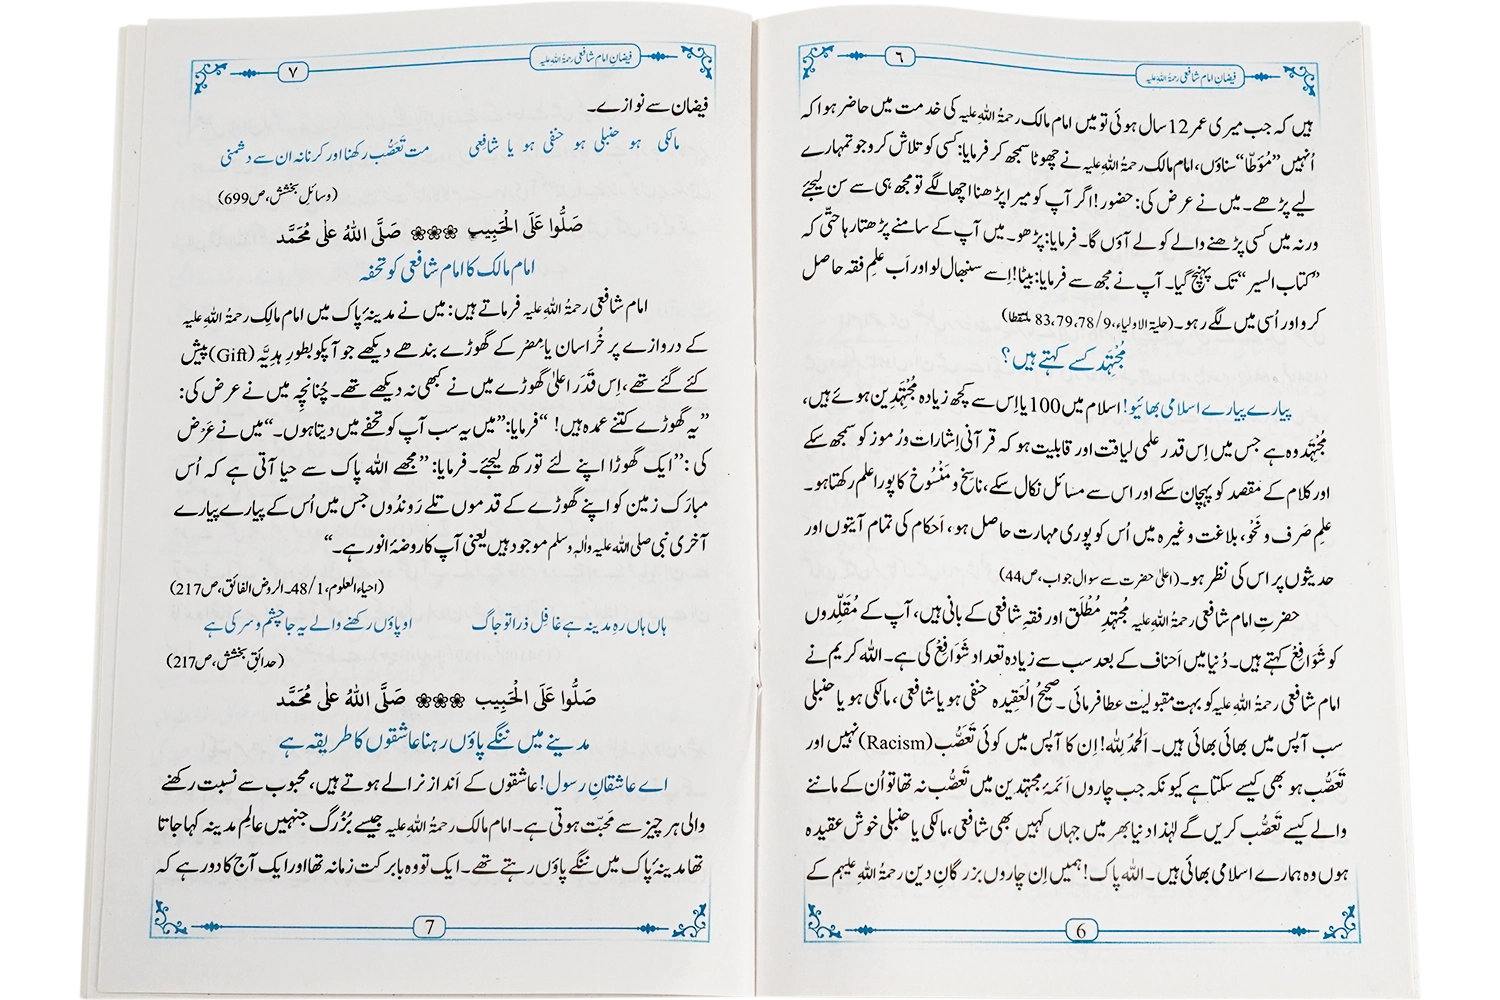 ٦
فیضانِ امام شافعی رحمۃُ اللہ علیہ
ہیں کہ جب میری عمر 12 سال ہوئی تو میں امام مالک رحمۃُ اللہِ علیہ کی خدمت میں حاضر ہوا کہ
اُنہیں ”مُؤَطّا“ سناؤں، امام مالک رحمۃُ اللہِ علیہ نے چھوٹا سمجھ کر فرمایا: کسی کو تلاش کرو جو تمہارے
لیے پڑھے۔ میں نے عرض کی: حضور! اگر آپ کو میرا پڑھنا اچھا لگے تو مجھ ہی سے سن لیجئے
ورنہ میں کسی پڑھنے والے کو لے آؤں گا۔ فرمایا: پڑھو۔ میں آپ کے سامنے پڑھتا رہا حتّٰی کہ
”کتاب السیر“ تک پہنچ گیا۔ آپ نے مجھ سے فرمایا: بیٹا! اِسے سنبھال لو اور اَب علمِ فقہ حاصل
کرو اور اُسی میں لگے رہو۔ (حلیۃ الاولیاء، 9/78، 79، 83 ملتقطا)
مُجْتَہِد کسے کہتے ہیں؟
پیارے پیارے اسلامی بھائیو! اسلام میں 100 یا اِس سے کچھ زیادہ مُجْتَہِدین ہوئے ہیں،
مُجْتَہِد وہ ہے جس میں اِس قدر علمی لیاقت اور قابلیت ہو کہ قرآنی اِشارات و رُموز کو سمجھ سکے
اور کلام کے مقصد کو پہچان سکے اور اس سے مسائل نکال سکے، ناسِخ و مَنْسُوخ کا پورا علم رکھتا ہو۔
علمِ صَرف و نَحْو، بلاغت وغیرہ میں اُس کو پوری مہارت حاصل ہو، اَحکام کی تمام آیتوں اور
حدیثوں پر اس کی نظر ہو۔ (اعلیٰ حضرت سے سوال جواب، ص44)
حضرتِ امام شافعی رحمۃُ اللہِ علیہ مُجتہدِ مُطْلَق اور فقہِ شافعی کے بانی ہیں، آپ کے مُقَلِّدوں
کو شَوَافِع کہتے ہیں۔ دُنیا میں اَحناف کے بعد سب سے زیادہ تعداد شَوَافِع کی ہے۔ اللہ کریم نے
امام شافعی رحمۃُ اللہِ علیہ کو بہت مقبولیت عطا فرمائی۔ صحیحُ الْعقیدہ حنفی ہو یا شافعی، مالکی ہو یا حنبلی
سب آپس میں بھائی بھائی ہیں۔ اَلحمدُ لِلّٰہ! اِن کا آپس میں کوئی تَعَصُّب (Racism) نہیں اور
تَعَصُّب ہو بھی کیسے سکتا ہے کیونکہ جب چاروں اَئمۂ مجتہدین میں تَعَصُّب نہ تھا تو اُن کے ماننے
والے کیسے تَعَصُّب کریں گے لہٰذا دنیا بھر میں جہاں کہیں بھی شافعی، مالکی یا حنبلی خوش عقیدہ
ہوں وہ ہمارے اسلامی بھائی ہیں۔ اللہ پاک! ہمیں اِن چاروں بزرگانِ دین رحمۃُ اللہِ علیہم کے
6
٧
فیضانِ امام شافعی رحمۃُ اللہ علیہ
فیضان سے نوازے۔
مالکی ہو حنبلی ہو حنفی ہو یا شافِعی مت تَعَصُّب رکھنا اور کرنا نہ ان سے دشمنی
(وسائلِ بخشش، ص699)
صَلُّوا عَلَی الْحَبِیب ❀❀❀ صَلَّی اللهُ عَلٰی مُحَمَّد
امام مالک کا امام شافعی کو تحفہ
امام شافعی رحمۃُ اللہِ علیہ فرماتے ہیں: میں نے مدینۂ پاک میں امام مالک رحمۃُ اللہِ علیہ
کے دروازے پر خُراسان یا مِصر کے گھوڑے بندھے دیکھے جو آپکو بطورِ ہدِیَّہ (Gift) پیش
کئے گئے تھے، اِس قَدَر اعلیٰ گھوڑے میں نے کبھی نہ دیکھے تھے۔ چُنانچِہ میں نے عرض کی:
”یہ گھوڑے کتنے عمدہ ہیں! “ فرمایا: ”میں یہ سب آپ کو تحفے میں دیتا ہوں۔“ میں نے عَرْض
کی: ”ایک گھوڑا اپنے لئے تو رکھ لیجئے۔ فرمایا: ”مجھے اللہ پاک سے حیا آتی ہے کہ اُس
مبارَک زمین کو اپنے گھوڑے کے قدموں تلے رَوندُوں جس میں اُس کے پیارے پیارے
آخری نبی صلی اللہ علیہ واٰلہٖ وسلم موجود ہیں یعنی آپ کا روضۂ انور ہے۔“
(احیاء العلوم، 1/48۔ الروض الفائق، ص217)
ہاں ہاں رہِ مدینہ ہے غافِل ذرا تو جاگ او پاؤں رکھنے والے یہ جا چشم و سر کی ہے
(حدائقِ بخشش، ص217)
صَلُّوا عَلَی الْحَبِیب ❀❀❀ صَلَّی اللهُ عَلٰی مُحَمَّد
مدینے میں ننگے پاؤں رہنا عاشقوں کا طریقہ ہے
اے عاشقانِ رسول! عاشقوں کے اَنداز نرالے ہوتے ہیں، محبوب سے نسبت رکھنے
والی ہر چیز سے محبّت ہوتی ہے۔ امام مالک رحمۃُ اللہِ علیہ جیسے بُزُرگ جنہیں عالِمِ مدینہ کہا جاتا
تھا مدینۂ پاک میں ننگے پاؤں رہتے تھے۔ ایک تو وہ بابرکت زمانہ تھا اور ایک آج کا دور ہے کہ
7